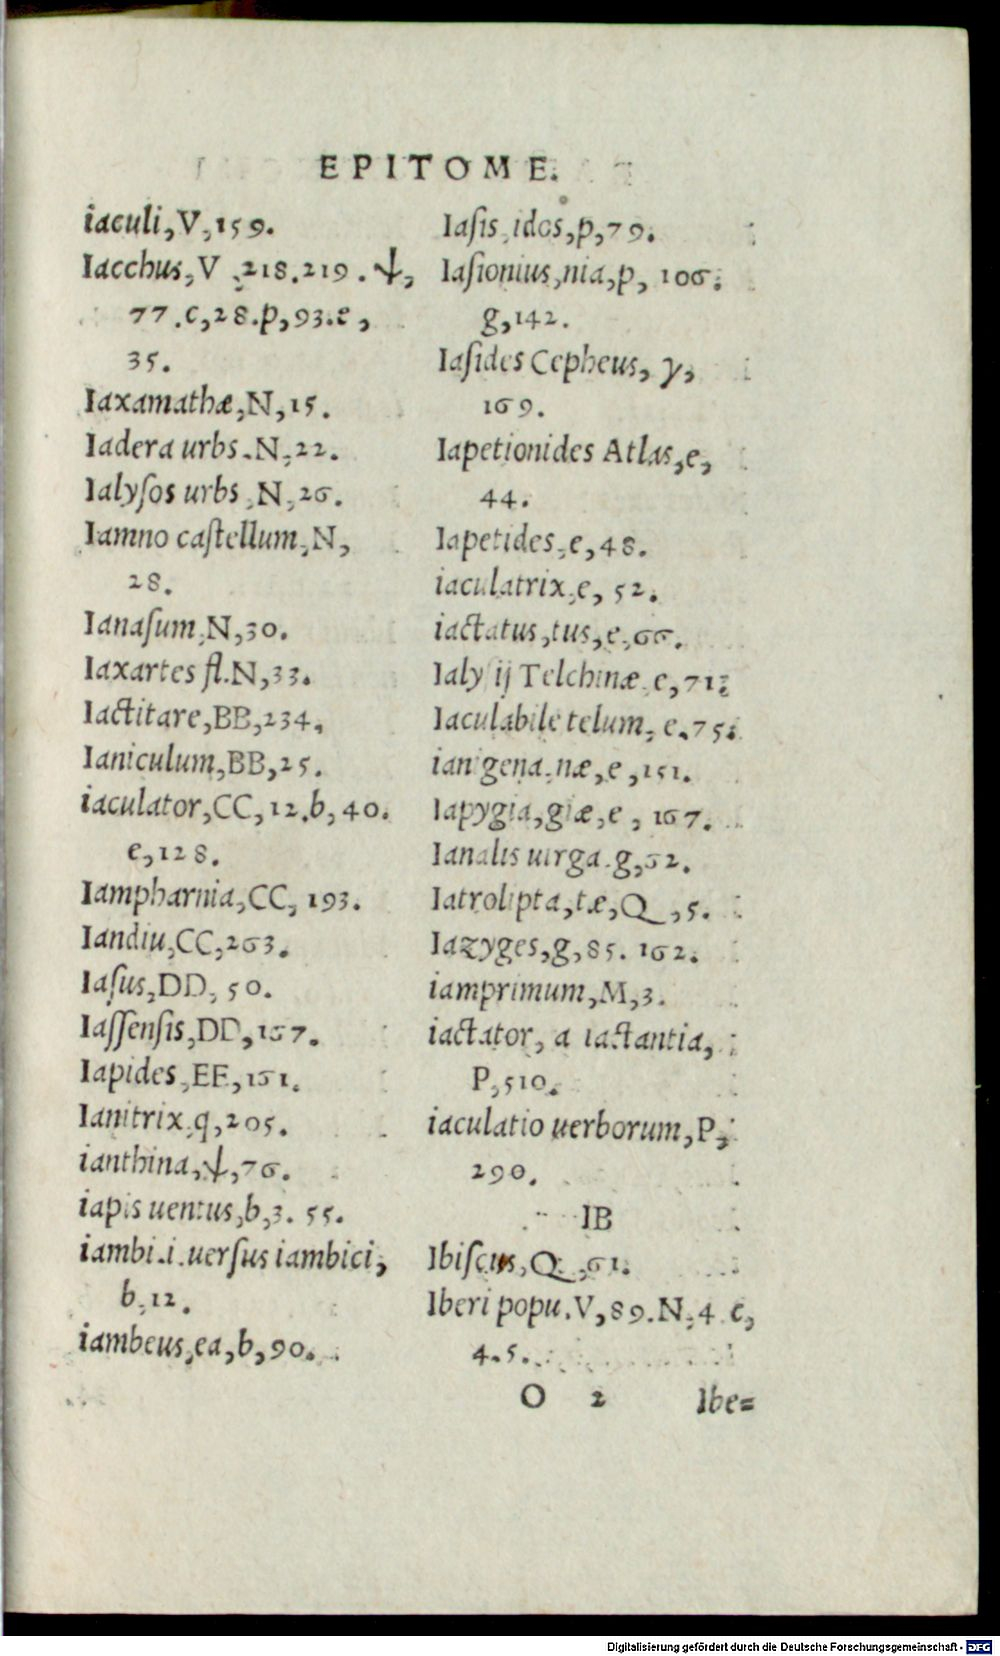 EPITOME.
iaculi, V, 159.
Iacchus, V, 218.219. ψ,
77.c, 28.p, 93.e,
35.
Iaxamathæ, N, 15.
Iadera urbs. N, 22.
Ialyſos urbs, N, 26.
Iamno caſtellum, N,
28.
Ianaſum, N, 30.
Iaxartes fl. N, 33.
Iactitare, BB, 234,
Ianiculum, BB, 25.
iaculator, CC, 12.b, 40.
e, 128.
Iampharnia, CC, 193.
Iandiu, CC, 263.
Iaſus, DD, 50.
Iaſſenſis, DD, 167.
Iapides, EE, 161.
Ianitrix. q, 205.
ianthina, ψ, 76.
iapis uentus, b, 3. 55.
iambi.i. uerſus iambici,
b, 12.
iambeus, ea, b, 90.
Iaſis, idos, p, 79.
Iaſionius, nia, p, 106.
g, 142.
Iaſides Cepheus, γ,
169.
Iapetionides Atlas, e,
44.
Iapetides, e, 48.
iaculatrix, e, 52.
iactatus, tus, e, 66.
Ialyſij Telchinæ, e, 71.
Iaculabile telum, e. 75.
ianigena, næ, e, 151.
Iapygia, giæ, e, 167.
Ianalis uirga. g, 62.
Iatrolipta, tæ, Q, 5.
Iazyges, g, 85. 162.
iamprimum, M, 3.
iactator, a iactantia,
P, 510.
iaculatio uerborum, P,
290.
IB
Ibiſcus, Q, 61.
Iberi popu. V, 89. N, 4 e,
4.5.
O 2 Ibe=
Digitalisierung gefördert durch die Deutsche Forschungsgemeinschaft - DFG